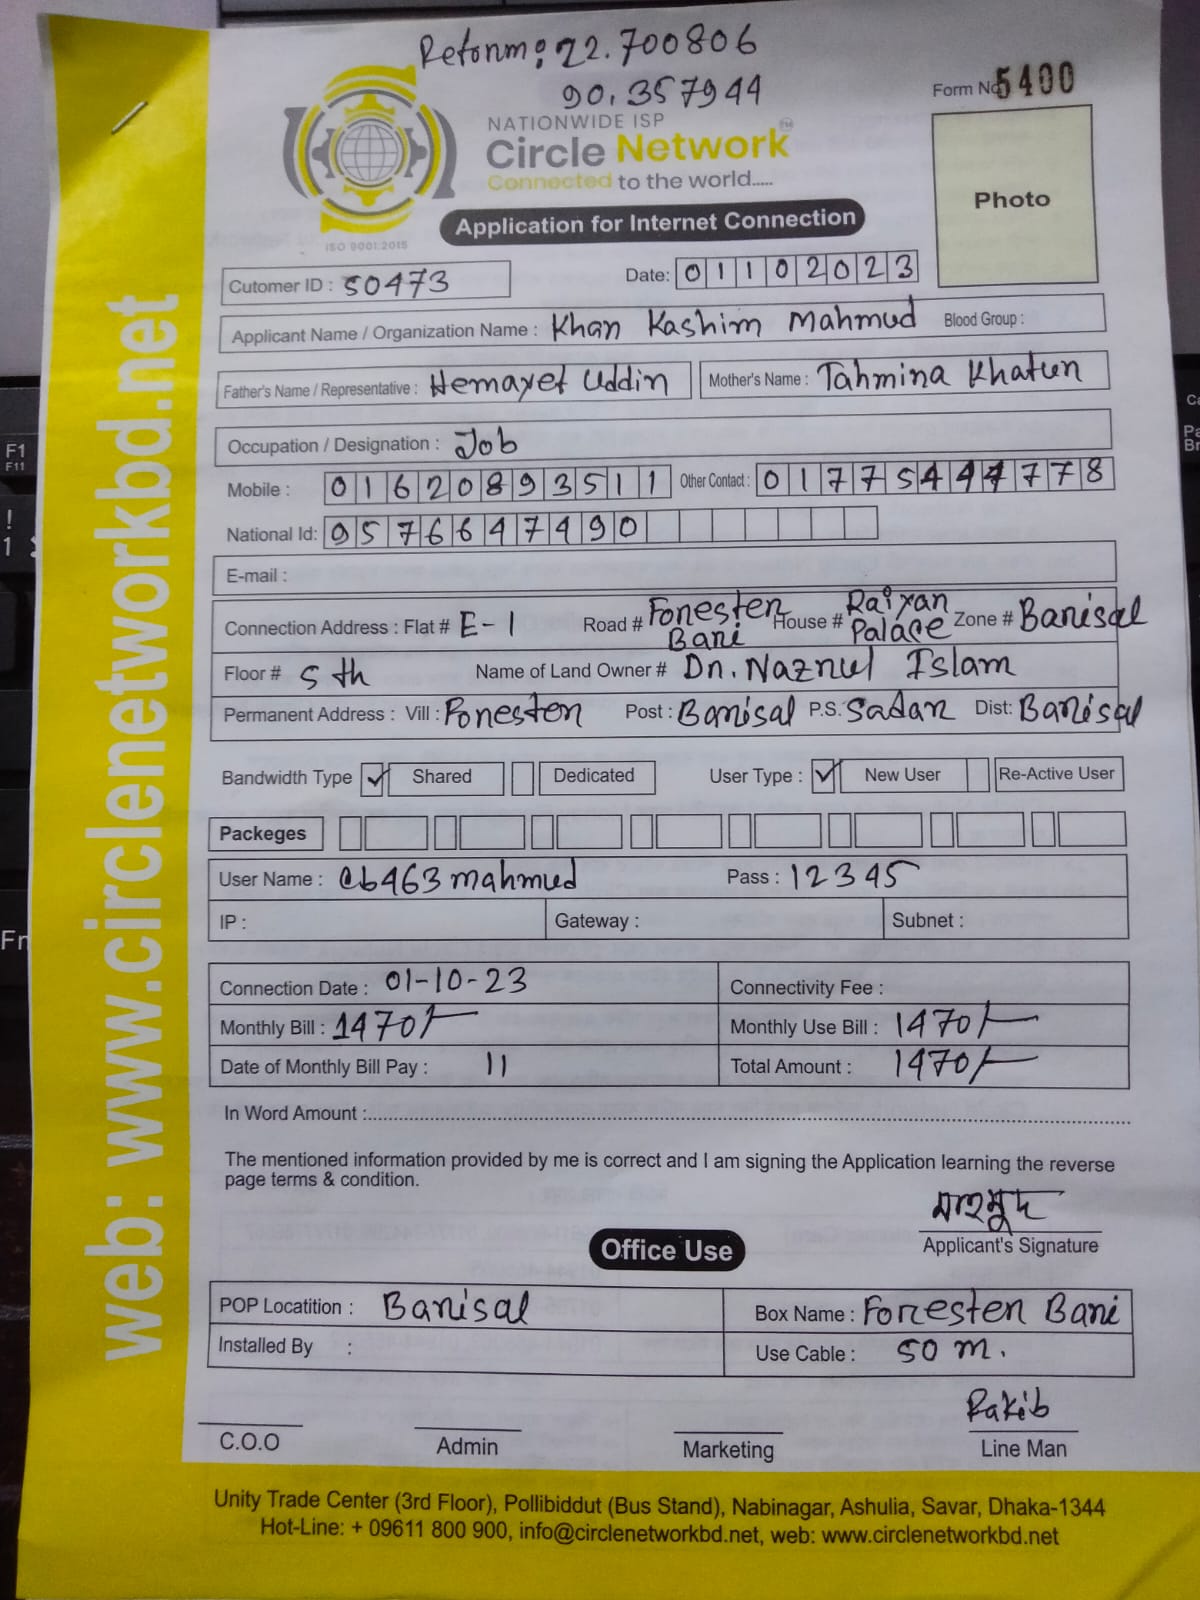 Retonm: 22.700806
90.357944
Form No 5400
NATIONWIDE ISP
Circle Network
Connected to the world.....
ISO 9001:2015
Application for Internet Connection
Photo
Cutomer ID : 50473 Date: 01102023
Applicant Name / Organization Name : Khan Kashim Mahmud Blood Group :
Father's Name / Representative : Hemayet Uddin Mother's Name : Tahmina Khatun
Occupation / Designation : Job
Mobile : 01620893511 Other Contact : 01775444778
National Id: 9576647490
E-mail :
Connection Address : Flat # E-1 Road # Foresten Bari House # Raiyan Palace Zone # Barisal
Floor # 5th Name of Land Owner # Dr. Nazrul Islam
Permanent Address : Vill : Foresten Post : Barisal P.S. Sadar Dist: Barisal
Bandwidth Type Shared Dedicated User Type : New User Re-Active User
Packeges
User Name : cb463mahmud Pass : 12345
IP : Gateway : Subnet :
Connection Date : 01-10-23 Connectivity Fee :
Monthly Bill : 1470/- Monthly Use Bill : 1470/-
Date of Monthly Bill Pay : 11 Total Amount : 1470/-
In Word Amount :
The mentioned information provided by me is correct and I am signing the Application learning the reverse
page terms & condition.
মাহমুদ
Applicant's Signature
Office Use
POP Locatition : Barisal Box Name : Foresten Bari
Installed By : Use Cable : 50 m.
Rakib
C.O.O Admin Marketing Line Man
Unity Trade Center (3rd Floor), Pollibiddut (Bus Stand), Nabinagar, Ashulia, Savar, Dhaka-1344
Hot-Line: + 09611 800 900, info@circlenetworkbd.net, web: www.circlenetworkbd.net
web: www.circlenetworkbd.net
F1
F11
!
1
Fn